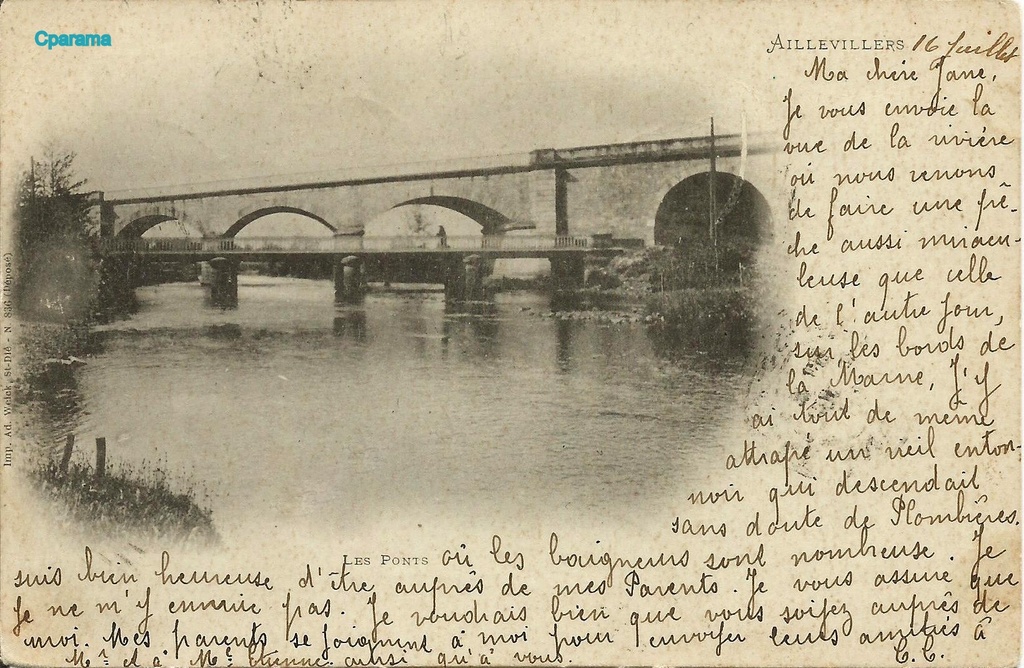 Cparama
AILLEVILLERS 16 Juillet
Ma chère Jane,
Je vous envoie la
vue de la rivière
où nous venons
de faire une pê-
che aussi miracu-
leuse que celle
de l'autre jour,
sur les bords de
la Marne, J'y
ai tout de même
attrapé un vieil enton-
noir qui descendait
sans doute de Plombières.
LES PONTS où les baigneurs sont nombreuse. Je
suis bien heureuse d'être auprès de mes Parents. Je vous assure que
Je ne m'y ennuie pas. Je voudrais bien que vous soyez auprès de
moi. Mes parents se joignent à moi pour envoyer leurs amitiés à
Mr et à Me Etienne ainsi qu'à vous. C.C.
Imp. Ad. Weick, St-Dié - N. 836 (Déposé)